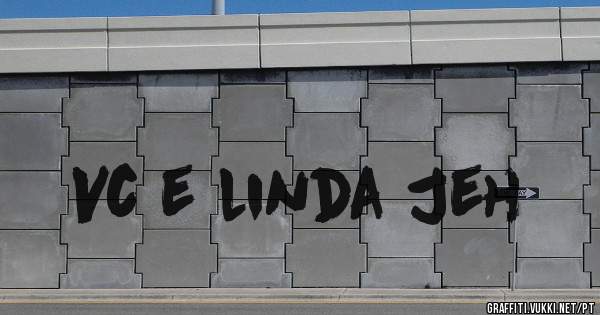 VC E LINDA JEH
GRAFFITI.VUKKI.NET/PT